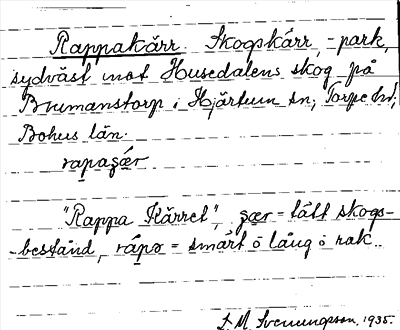 Rappakärr. Skogskärr, -park,
sydväst mot Husedalens skog på
Brumanstorp i Hjärtum sn; Torpe hd;
Bohus län.
rapaʂǽr.
"Rappa Kärret", ʂær = tätt skogs-
-bestånd, rápa = smärt o lång o rak..
D. M. Svenungsson. 1935.